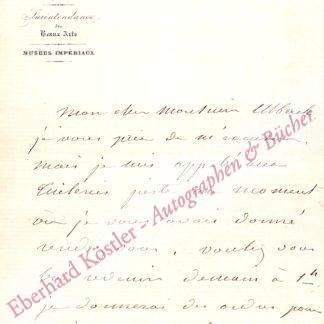 Surintendance
des
Beaux Arts
MUSÉES IMPÉRIAUX
Mon cher Monsieur Ulbach
je vous prie de m'excuser
mais je suis appelé aux
Tuileries juste au moment
où je vous avais donné
rendez vous, voulez vous
revenir demain à 1h
je donnerai des ordres pour
Eberhard Köstler - Autographen & Bücher